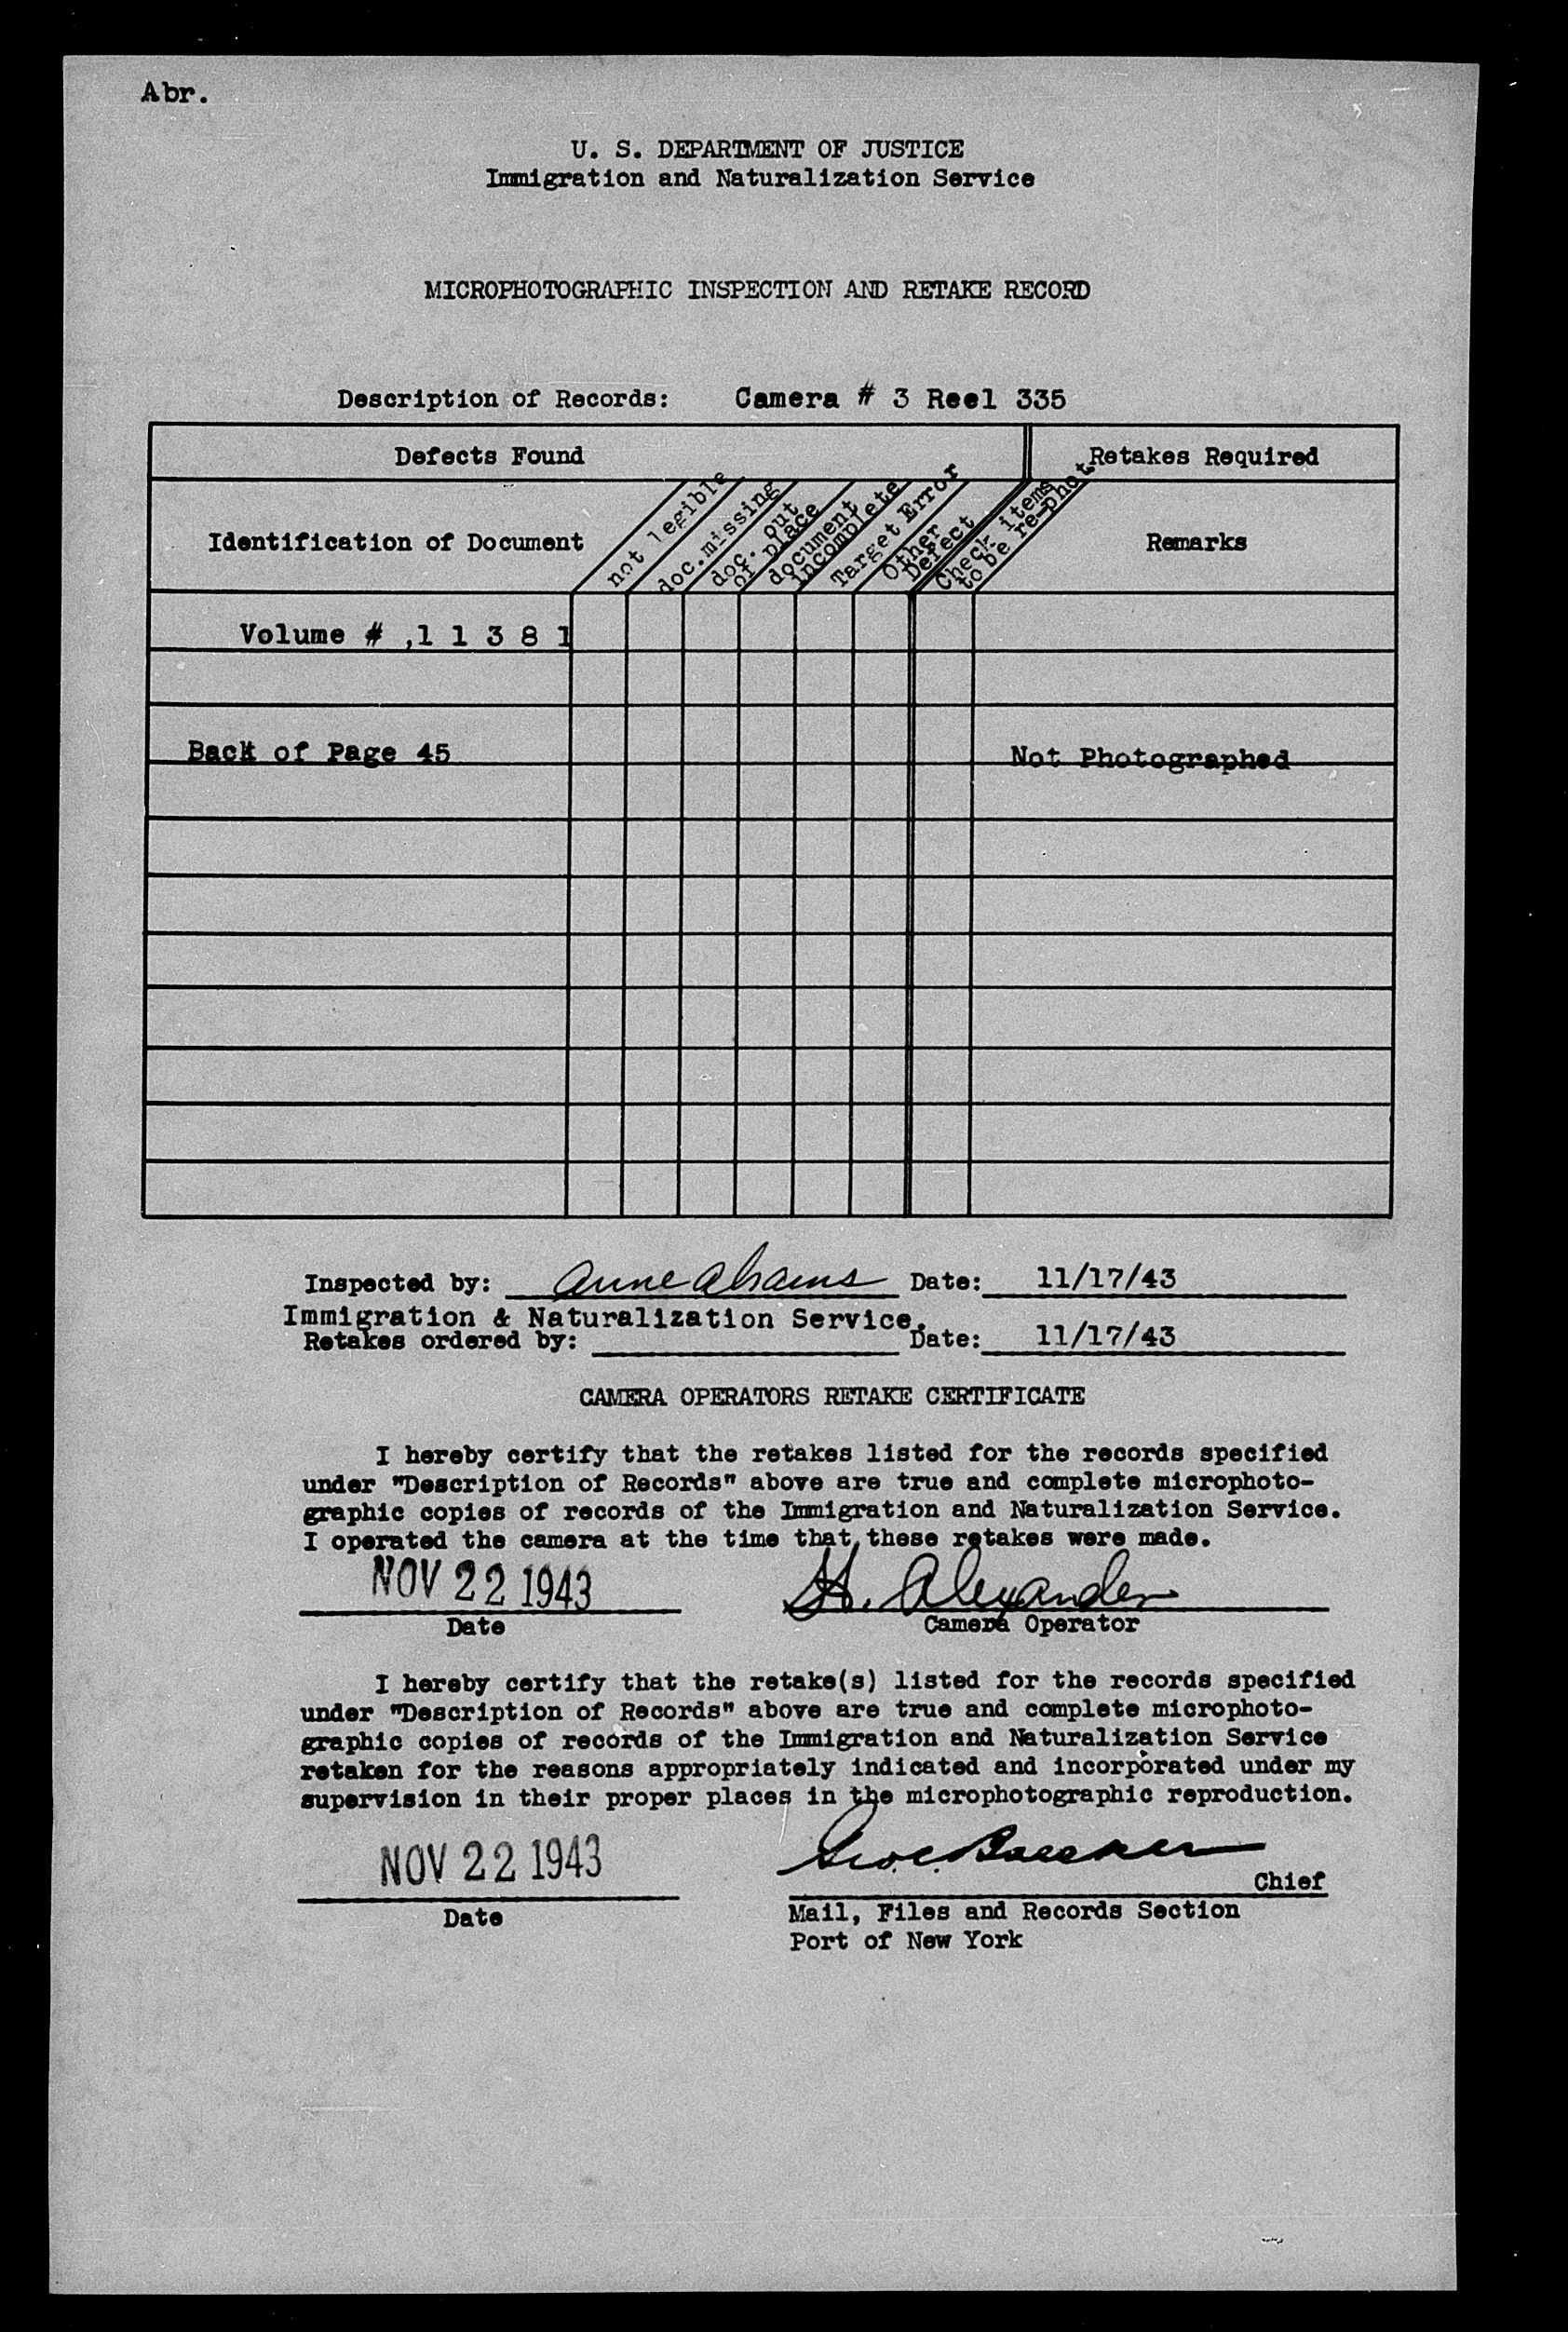 Abr.
U. S. DEPARTMENT OF JUSTICE
Immigration and Naturalization Service
MICROPHOTOGRAPHIC INSPECTION AND RETAKE RECORD
Description of Records: Camera # 3 Reel 335
Defects Found
Retakes Required
Identification of Document
not legible
doc. missing
doc. out
of place
document
incomplete
Target Error
Other
Defect
Check items
to be re-phot
Remarks
Volume # ,1 1 3 8 1
Back of Page 45 Not Photographed
Inspected by: Anne Abrams Date: 11/17/43
Immigration & Naturalization Service.
Retakes ordered by: Date: 11/17/43
CAMERA OPERATORS RETAKE CERTIFICATE
I hereby certify that the retakes listed for the records specified
under "Description of Records" above are true and complete microphoto-
graphic copies of records of the Immigration and Naturalization Service.
I operated the camera at the time that these retakes were made.
NOV 22 1943 H. Alexander
Date Camera Operator
I hereby certify that the retake(s) listed for the records specified
under "Description of Records" above are true and complete microphoto-
graphic copies of records of the Immigration and Naturalization Service
retaken for the reasons appropriately indicated and incorporated under my
supervision in their proper places in the microphotographic reproduction.
NOV 22 1943
Chief
Date
Mail, Files and Records Section
Port of New York